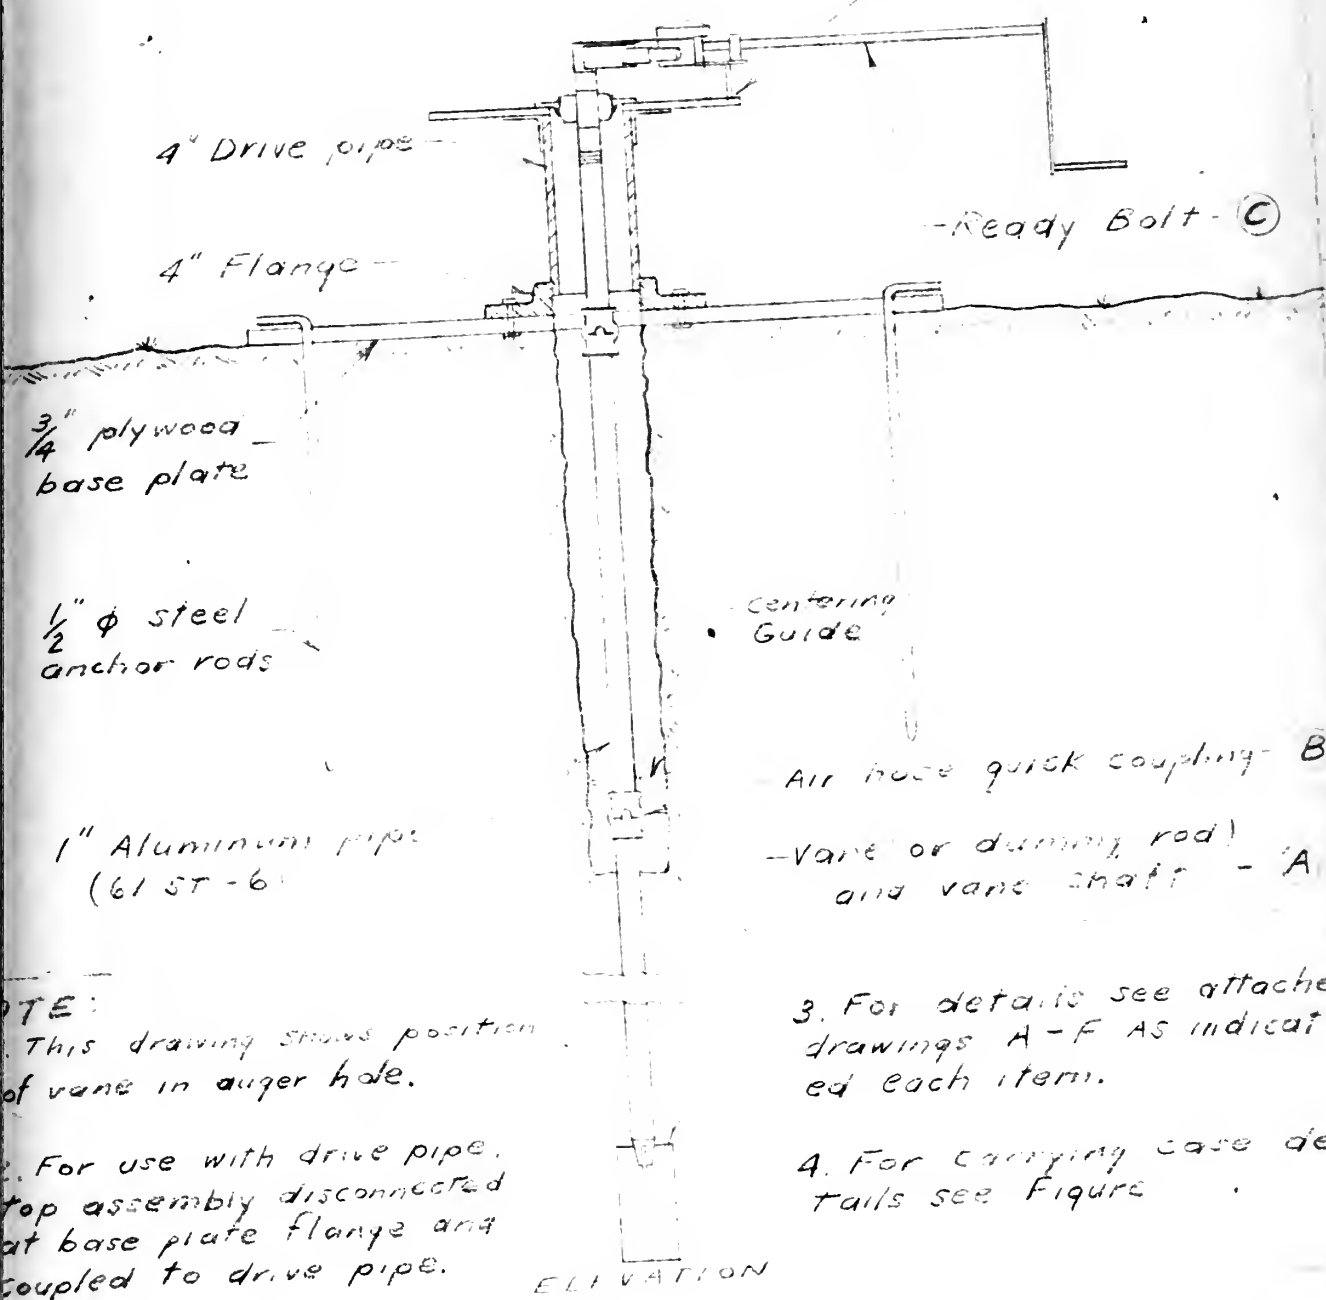 4" Drive pipe
4" Flange
Ready Bolt - C
3/4" plywood
base plate
1/2" ϕ steel
anchor rods
Centering
Guide
Air hose quick coupling - B
1" Aluminum pipe
(61 ST - 6
Vane or dummy rod)
and vane shaft - A
OTE:
. This drawing shows position
of vane in auger hole.
. For use with drive pipe.
top assembly disconnected
at base plate flange and
coupled to drive pipe.
3. For details see attache
drawings A - F AS indicat
ed each item.
4. For carrying case de
tails see Figure .
ELEVATION